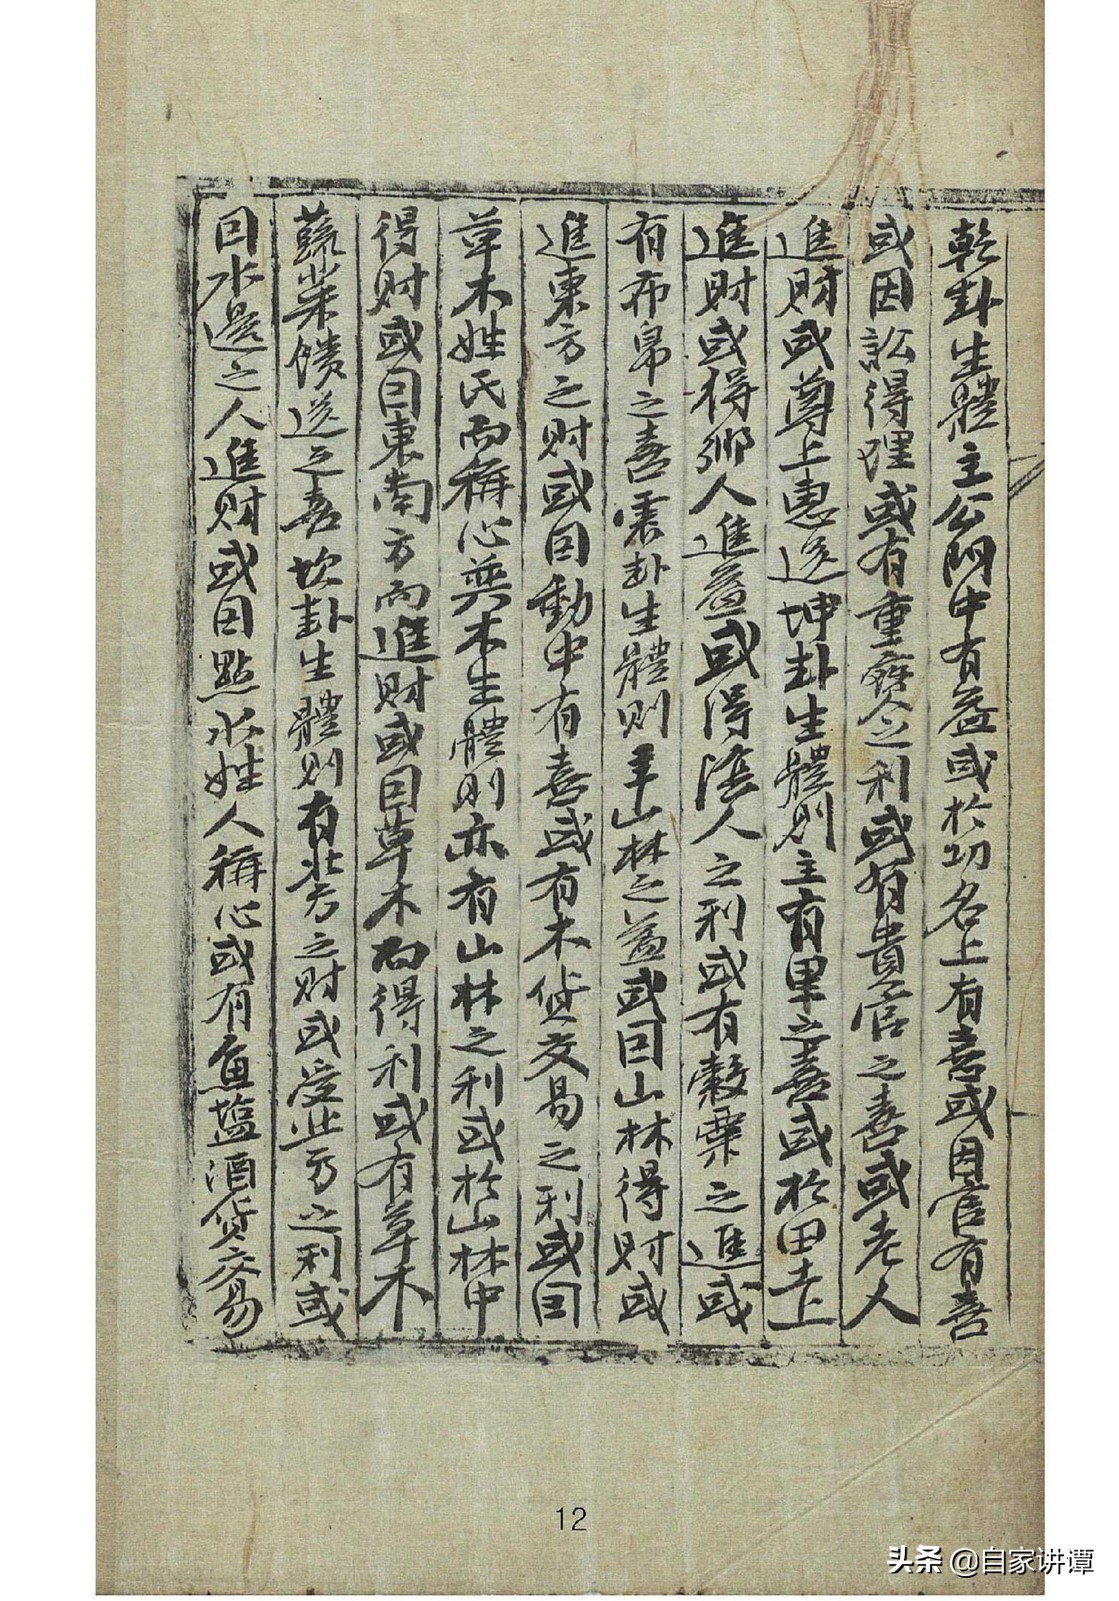 乾卦生體主公門中有益或於功名上有喜或因官有喜
或因訟得理或有重寶之利或有貴官之喜或老人
進財或尊上惠送坤卦生體則主有里之喜或於田土上
進財或得鄉人進益或得陰人之利或有穀粟之進或
有布帛之喜震卦生體則主山林之益或因山林得財或
進東方之財或因動中有喜或有木貨交易之利或因
草木姓氏而稱心巽木生體則亦有山林之利或於山林中
得財或因東南方而進財或因草木而得利或有草木
蔬菜饋送之喜坎卦生體則有北方之財或受北方之利或
因水邊之人進財或因點水姓人稱心或有魚塩酒貨交易
12
头条 @自家讲谭